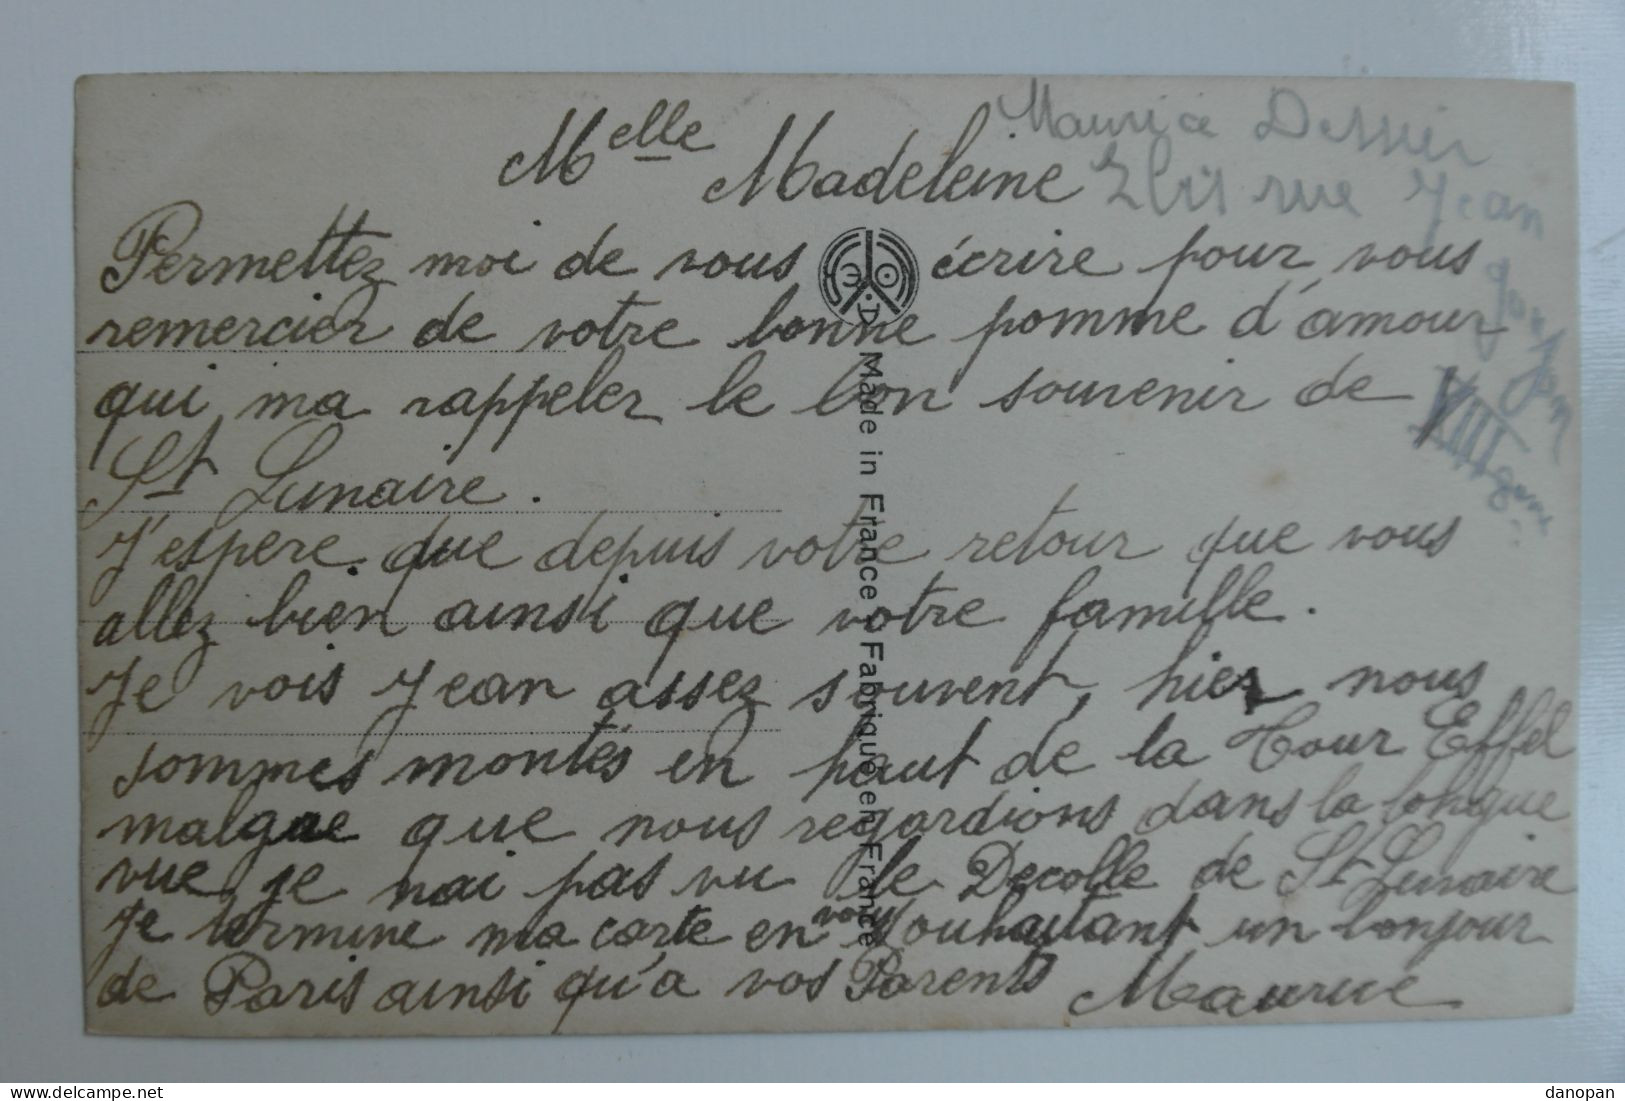 Melle Madeleine
Maurice
bis rue Jean
Goujon
VIII
Permettez moi de vous écrire pour vous
remercier de votre bonne pomme d'amour
qui ma rappeler le bon souvenir de
St Lunaire.
J'espere que depuis votre retour que vous
allez bien ainsi que votre famille.
Je vois Jean assez souvent, hier nous
sommes montés en haut de la Tour Eiffel
malgre que nous regardions dans la longue
vue je nai pas vu le Decolle de St Lunaire
Je termine ma carte en vous souhaitant un bonjour
de Paris ainsi qu'a vos Parents Maurice
E.D. Made in France Fabriqué en France
delcampe.net
danopan